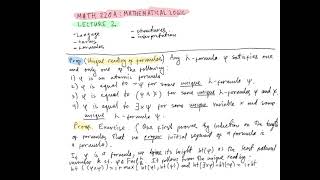 MATH 220A: MATHEMATICAL LOGIC
LECTURE 2.
- Language - structures
- terms - interpretation
- formulas
Prop (Unique reading of formulas) Any L-formula φ satisfies one
and only one of the following
1) φ is an atomic formula
2) φ is equal to ¬ψ for some unique L-formula ψ.
3) φ is equal to (ψ ∧ χ) for some unique L-formulas ψ and χ.
4) φ is equal to ∃x ψ for some unique variable x and some
unique L-formula ψ.
Proof. Exercise (One first proves by induction on the height
of formulas that no proper initial segment of a formula is
a formula).
If φ is a formula, we define its height ht(φ) as the least natural
number k s.t. φ ∈ It follows from the unique reading
ht ((ψ∧χ)) = 1 + max { ht(ψ), ht(χ) } and ht(∃xψ) = ht(¬ψ) = 1 + ht